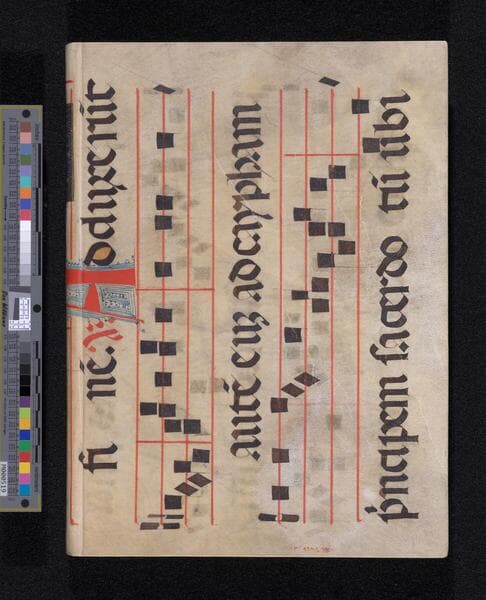 fi né. A. Aduxerūt
autē eū ad caypham
pncipem sacerdo tū ubi